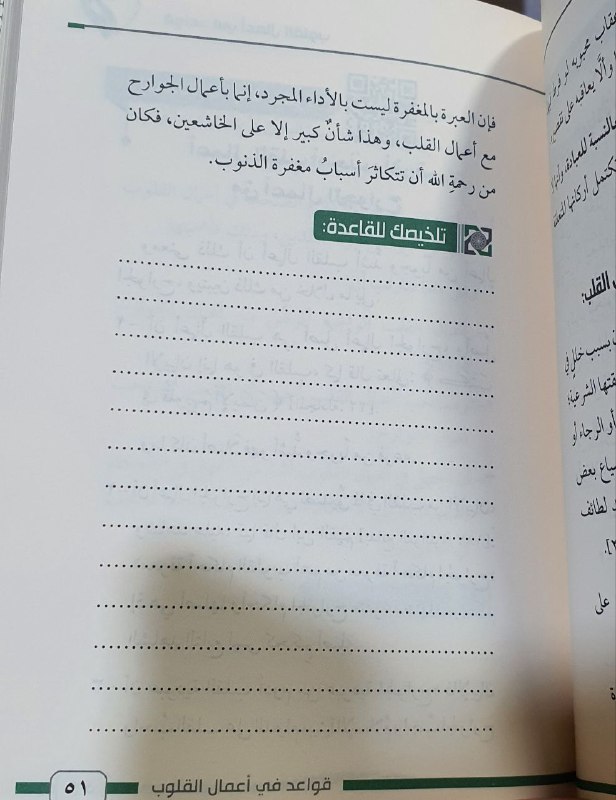 فإن العبرة بالمغفرة ليست بالأداء المجرد، إنما بأعمال الجوارح
مع أعمال القلب، وهذا شأنٌ كبير إلا على الخاشعين، فكان
من رحمةِ الله أن تتكاثرَ أسبابُ مغفرة الذنوب.
تلخيصك للقاعدة:
قواعد في أعمال القلوب
٥١
القلب:
بسبب خللٍ في
أو الرجاء أو
بعض
لطائف
على